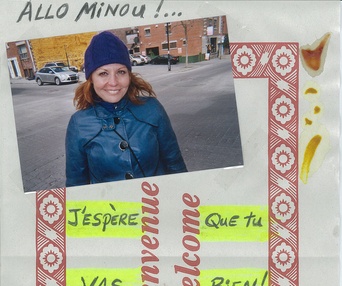 ALLO MINOU!...
J'ESPÈRE QUE TU
VAS BIEN!
envenue
elcome